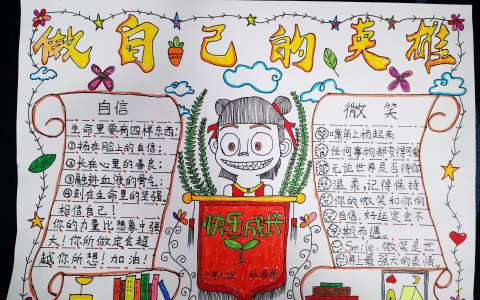 做自己的英雄
自信
生命里要有四样东西:
①扬在脸上的自信;
②长在心里的善良;
③融进血液的骨气;
④刻在生命里的坚强。
相信自己!
你的力量比想象中强
大!你所做定会超
越你所想!加油!
快乐成长
微笑
嘴角上扬起来
任何事物都变得可爱
无论世界是否待你
温柔,记得保持
你的微笑和你的
自信,好运定会不
期而遇。
Smile 微笑是世
界上最强大的表情